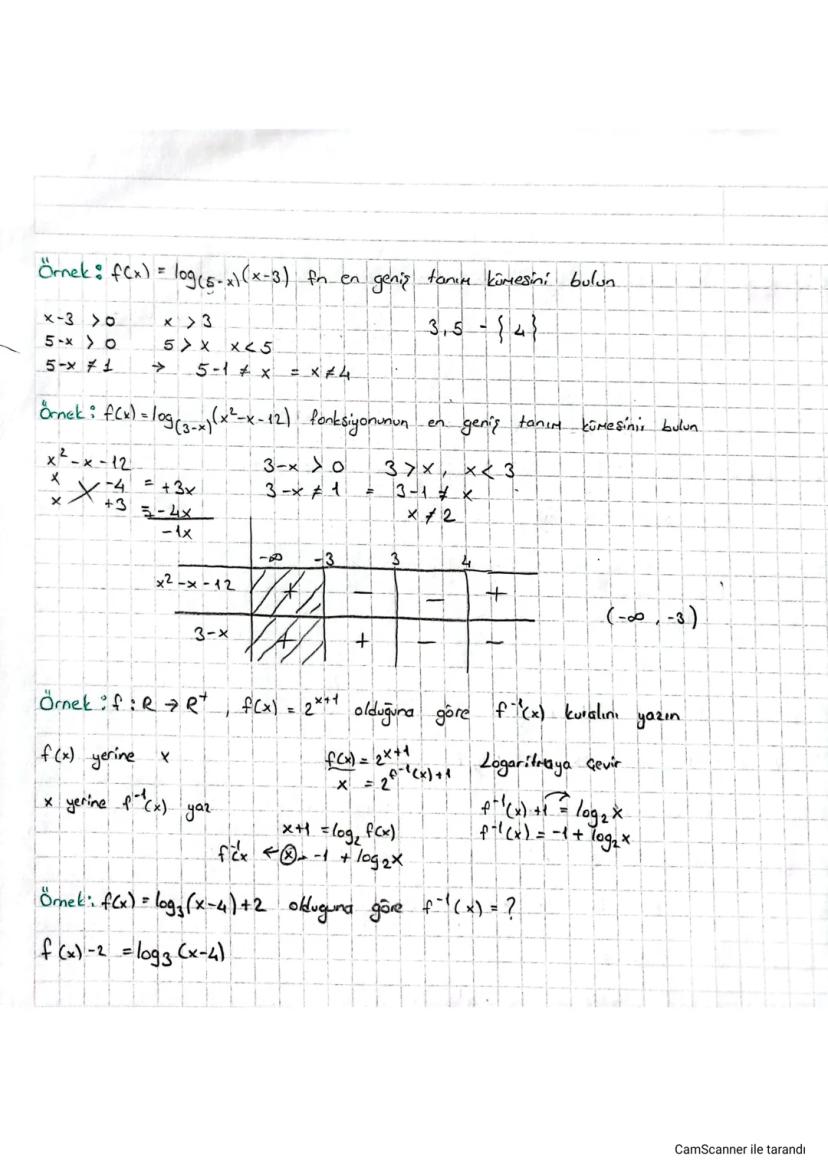 Örnek: f(x) = log(5-x)(x-3) fn en geniş tanım kümesini bulun
x-3 >0    x >3    3,5 - {4}
5-x >0    5 > x  x<5
5-x ≠ 1  →  5-1 ≠ x = x≠4
Örnek: f(x) = log(3-x)(x²-x-12) fonksiyonunun en geniş tanım kümesini bulun
x²-x-12    3-x >0    3 >x, x<3
x -4 = +3x    3-x ≠ 1 = 3-1 ≠ x
x +3 = -4x    x ≠ 2
-1x
-∞  -3  3  4
x²-x-12  +  -  -  +
(-∞, -3)
3-x  +  +  -  -
Örnek: f: R → R⁺, f(x) = 2ˣ⁺¹ olduğuna göre f⁻¹(x) kuralını yazın
f(x) yerine x    f(x) = 2ˣ⁺¹    Logaritmaya çevir
x = 2^f⁻¹(x)+1
x yerine f⁻¹(x) yaz    f⁻¹(x)+1 = log₂x
x+1 = log₂ f(x)    f⁻¹(x) = -1 + log₂x
f⁻¹x ← x = -1 + log₂x
Örnek: f(x) = log₃(x-4)+2 olduguna göre f⁻¹(x) = ?
f(x)-2 = log₃(x-4)
CamScanner ile tarandı